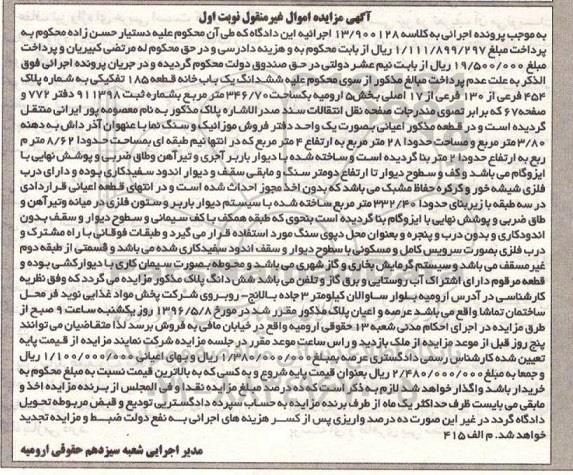 آگهی مزایده اموال غیرمنقول نوبت اول
به موجب پرونده اجرائی به کلاسه ۱۳/۹۰۰۱۲۸ اجرائیه این دادگاه که طی آن محکوم علیه دستیار حسن زاده محکوم به
پرداخت مبلغ ۱/۱۱۱/۸۹۹/۲۹۷ ریال از بابت محکوم به و هزینه دادرسی و در حق محکوم له مرتضی کبیریان و پرداخت
مبلغ ۱۹/۵۰۰/۰۰۰ ریال از بابت نیم عشر دولتی در حق صندوق دولت محکوم گردیده و در جریان پرونده اجرائی فوق
الذکر به علت عدم پرداخت مبالغ مذکور از سوی محکوم علیه ششدانگ یک باب خانه قطعه ۱۸۵ تفکیکی به شماره پلاک
۴۵۴ فرعی از ۱۳۰ فرعی از ۱۷ اصلی بخش ۵ ارومیه بکساحت ۳۴۶/۷۰ متر مربع بشماره ثبت ۹۱۱۳۹۸ دفتر ۷۷۲ و
صفحه ۶۷ که برابر تصویر مندرجات صفحه نقل انتقالات سند صدرالاشاره پلاک مذکور به نام معصومه پور ایرانی منتقل
گردیده است و در قطعه مذکور اعیانی بصورت یک واحد دفتر فروش موزائیک و سنگ نما با عنوان آذر داش به دهنه
۳/۸۰ متر مربع و مساحت حدودا ۲۸ متر مربع به ارتفاع ۴ متر مربع که در انتها نیم طبقه ای بمساحت حدودا ۸/۶۲ متر م
ربع به ارتفاع حدودا ۲ متر بنا گردیده است و ساخته شده با دیوار باربر آجری و تیرآهن وطاق ضربی و پوشش نهایی با
ایزوگام می باشد و کف و سطوح دیوار تا ارتفاع دومتر سنگ و مابقی سقف و دیوار اندود سفیدکاری بوده و دارای درب
فلزی شیشه خور و کرکره حفاظ مشبک می باشد که بدون اخذ مجوز احداث شده است و در انتهای قطعه اعیانی قراردادی
در سه طبقه با زیربنای حدودا ۳۳۲/۴۰ متر مربع ساخته شده با سیستم دیوار باربر و ستون فلزی در میانه وتیرآهن و
طاق ضربی و پوشش نهایی با ایزوگام بنا گردیده است بنحوی که طبقه همکف با کف سیمانی و سطوح دیوار و سقف بدون
اندودکاری و بدون درب و پنجره و بعنوان محل دپوی سنگ مورد استفاده قرار می گیرد و طبقات فوقانی با راه مشترک و
درب فلزی بصورت سرویس کامل و مسکونی با سطوح دیوار و سقف اندود سفیدکاری شده می باشد و قسمتی از طبقه دوم
غیرمسقف می باشد و سیستم گرمایش بخاری و گاز شهری می باشد و محوطه بصورت سیمان کاری با دیوارکشی بوده و
قطعه مرقوم دارای اشتراک آب روستایی و برق گاز و تلفن می باشد شش دانگ پلاک مذکور مزایده می گردد که وفق نظریه
کارشناسی در آدرس ارومیه بلوار ساوالان کیلومتر ۳ جاده بالانج- روبروی شرکت پخش مواد غذایی نوید فر محل
ساختمان تماشا واقع می باشد عرصه و اعیان پلاک مذکور مقرر شد در مورخ ۱۳۹۶/۵/۸ روز یکشنبه ساعت ۹ صبح از
طرق مزایده در اجرای احکام مدنی شعبه ۱۳ حقوقی ارومیه واقع در خیابان مافی به فروش برسد لذا متقاضیان می توانند
پنج روز قبل از موعد مزایده از ملک بازدید و راس ساعت موعد مقرر در جلسه مزایده شرکت نمایند مزایده از قیمت پایه
تعیین شده کارشناس رسمی دادگستری عرصه بمبلغ ۱/۳۸۰/۰۰۰/۰۰۰ ریال و بهای اعیانی ۱/۱۰۰/۰۰۰/۰۰۰ ریال
و جمعا به مبلغ ۲/۴۸۰/۰۰۰/۰۰۰ ریال بعنوان قیمت پایه شروع و به کسی که به بالاترین قیمت نسبت به مبلغ محکوم به
خریدار باشد واگذار خواهد شد لازم به ذکر است که ده درصد مبلغ مزایده نقدا و فی المجلس از برنده مزایده اخذ و
مابقی می بایست ظرف حداکثر یک ماه از طرف برنده مزایده به حساب سپرده دادگستری تودیع و قبض مربوطه تحویل
دادگاه گردد در غیر این صورت ده درصد واریزی پس از کسر هزینه های اجرائی به نفع دولت ضبط و مزایده تجدید
خواهد شد. م الف ۴۱۵
مدیر اجرایی شعبه سیزدهم حقوقی ارومیه